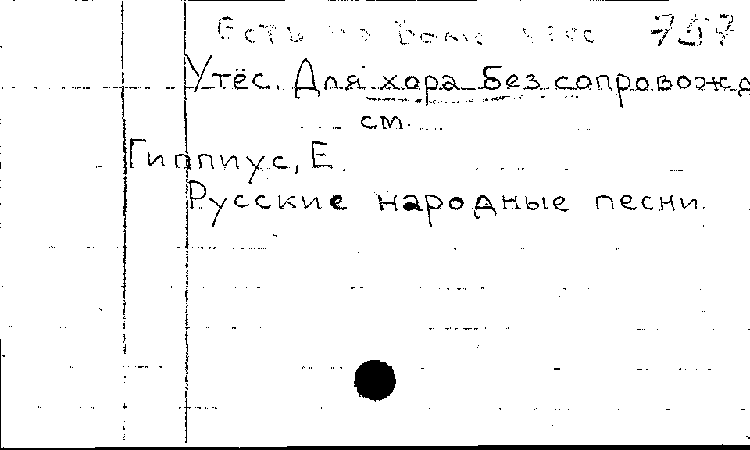 Есть на Волге утёс 757
Утёс. Для хора без сопровожд
см.
Гиппиус, Е.
Русские народные песни.